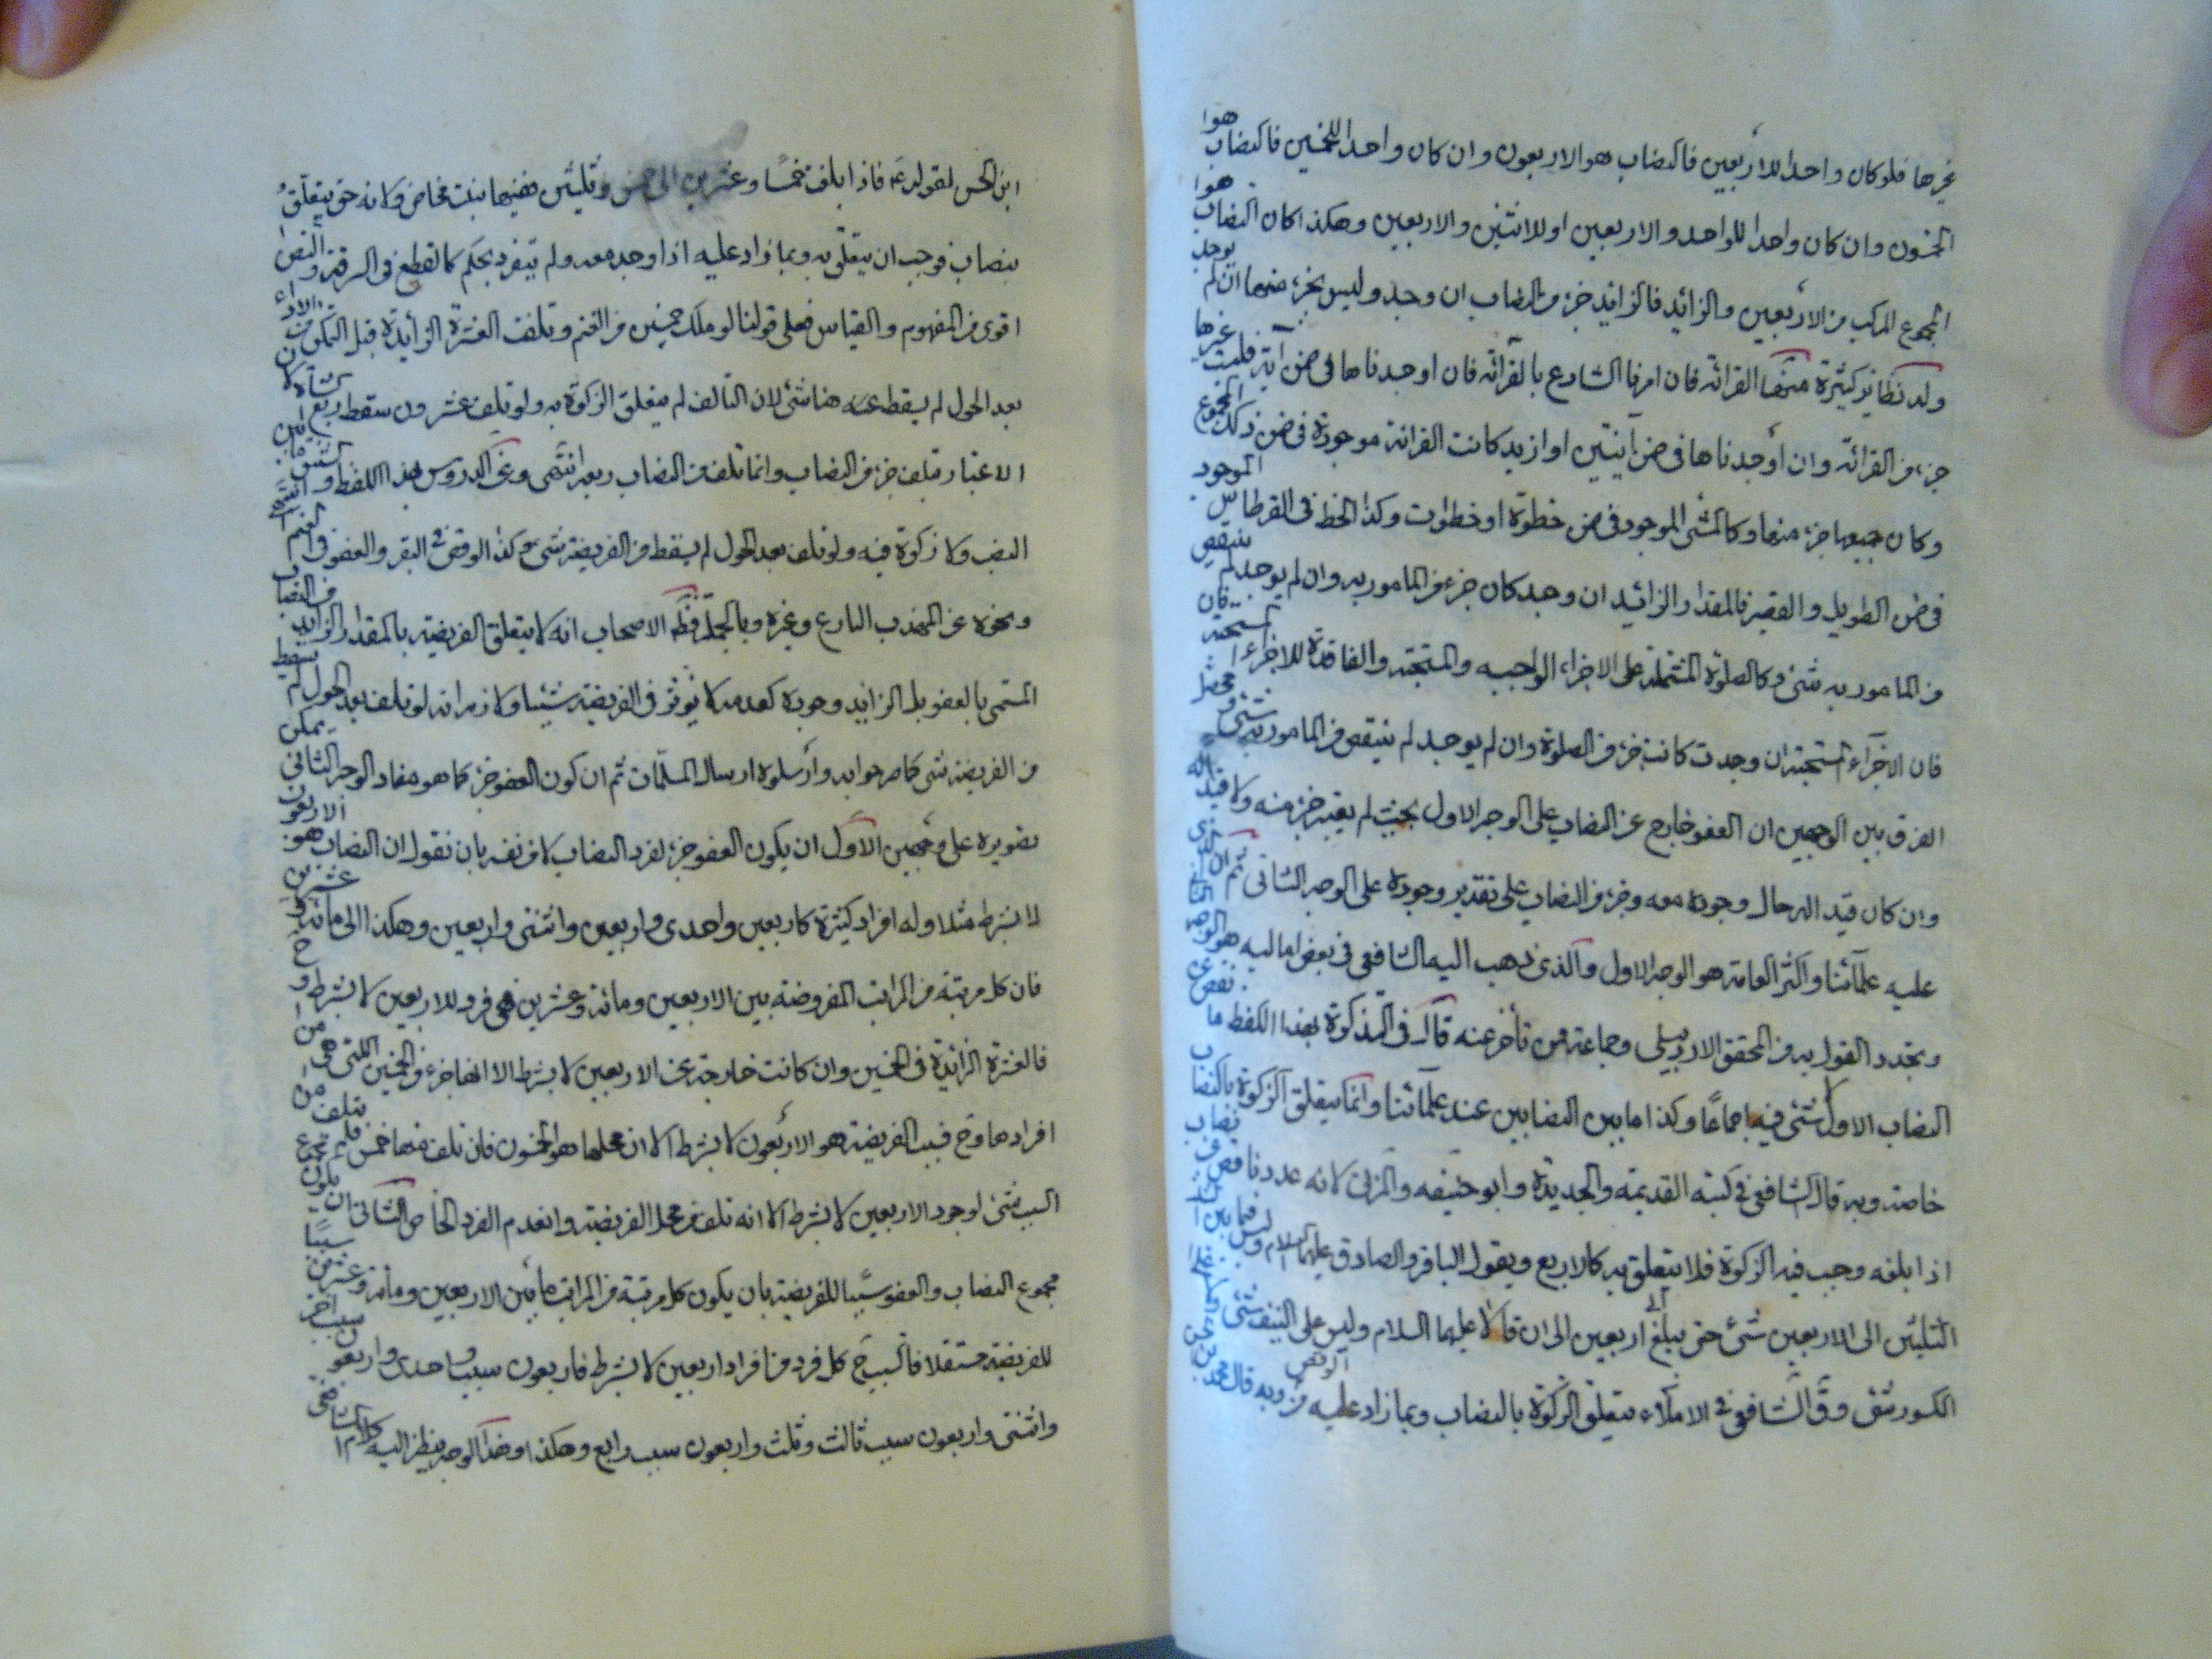 غيرها فلو كان واحدا للاربعين فالنصاب هو الاربعون وان كان واحدا للخمسين فالنصاب هو ا
الخمسون وان كان واحدا للواحد والاربعين او للاثنين والاربعين وهكذا كان النصاب هو ا
المجموع المركب من الاربعين والزائد فالزائد جزء من النصاب ان وجد وليس بجزء منهما ان لم يوجد
وله نظاير كثيرة منها القرائة فان امرنا الشارع بالقرائة فان اوجدناها فى ضمن آية فليست غيرها
جزء من القرائة وان أوجدناها فى ضمن آيتين او ازيد كانت القرائة موجودة فى ضمن ذلك المجموع
وكان جميعها جزء منها وكالمشى الموجود فى ضمن خطوة او خطوات وكذا الخط فى القرطاس الموجود
فى ضمن الطويل والقصير فالمقدار الزائد ان وجد كان جزء من المامور به وان لم يوجد لم ينتقص
من المامور به شئ وكالصلوة المشتملة على الاجزاء الواجبه والمستحبة والفاقدة للاجزاء المستحبة فان
فان الاجزاء المستحبة ان وجدت كانت جزء من الصلوة وان لم يوجد لم ينتقص من المامور به شئ و
الفرق بين الوجهين ان العفو خارج عن النصاب على الوجه الاول بحيث لم يعتبر جزء منه ولا قيدا له
وان كان قيد الرحال وجوده معه وجزء من النصاب على تقدير وجوده على الوجه الثانى ثم ان الذى
عليه علمآئنا واكثر العامة هو الوجه الاول والذى ذهب اليه الشافعى فى بعض اماليه هو الوجه الثانى
وتجدد القول به من المحقق الاردبيلى وجماعة ممن تأخر عنه قال فى التذكرة بهذا اللفظ ما نقص عن
النصاب الاول لا شئ فيه اجماعًا وكذا ما بين النصابين عند علمآئنا وانما يتعلق الزكوة بالنصاب
خاصة وبه قال الشافعى فى كتبه القديمة والجديدة وابو حنيفه والمزنى لانه عدد ناقص عن نصاب
اذا بلغه وجب فيه الزكوة فلا يتعلق به كالاربع ويقول الباقر والصادق عليهما السلام وليس فيما بين
الثلثين الى الاربعين شئ حتى يبلغ اربعين الى ان قالا عليهما السلام وليس على النيف شئ
الكسور شئ وق الشافعى فى الاملاء يتعلق الزكوة بالنصاب وبما زاد عليه من الوقص وبه قال محمد بن
ابن الحسن لقوله ع فاذا بلغت خمسًا وعشرين الى خمس وثلثين ففيها بنت مخاض ولانه حق يتعلق
بنصاب فوجب ان يتعلق به وبما زاد عليه اذا وجد معه ولم يتفرد بحكم كالقطع فى السرقة والنص
اقوى من المفهوم والقياس فعلى قولنا لو ملك خمسين من الغنم وتلفت العشرة الزائدة قبل التمكن من الاداء
بعد الحول لم يسقط عنه هنا شئ لان التالف لم يتعلق الزكوة به ولو تلف عشرون سقط ربع الشاة لان
الاعتبار بتلف جزء من النصاب وانما تلف من النصاب ربعه انتهى وعن الدروس بهذا اللفظ و
النصب ولا زكوة فيه ولو تلف بعد الحول لم يسقط من الفريضة شئ وكذا الوقص فى البقر والعفو فى الغنم
ونحوه عن المهذب البارع وغيره وبالجملة فظ الاصحاب انه لا يتعلق الفريضة بالمقدار الزائد من النصاب
المسمى بالعفو بل الزايد وجوده كعدمه لا يؤثر فى الفريضة شيئا ولازمه انه لو تلف بعد الحول لم يسقط
من الفريضة شئ كما صرحوا به وأرسلوه ارسال المسلمات ثم ان كون العفو جزء كما هو مفاد الوجه الثانى يمكن
تصويره على وجهين الاول ان يكون العفو جزء لفرد النصاب لا لنفسه بان نقول ان النصاب هو الاربعون
لا بشرط مثلا وله افراد كثيرة كاربعين واحدى واربعين واثنتى واربعين وهكذا الى مائة وعشرين
فان كل مرتبة من المراتب المفروضة بين الاربعين ومائة وعشرين هى فرد للاربعين لا بشرط وح
فالعشرة الزائدة فى الخمسين وان كانت خارجة عن الاربعين لا بشرط الا انها جزء من الخمسين اللتى هى من
افرادها وح فسبب الفريضة هو الاربعون لا بشرط الا ان محلها هو الخمسون فان تلف منها خمس فلم يتلف من
السبب شئ لوجود الاربعين لا بشرط الا انه تلف من محل الفريضة وانعدم الفرد الخاص الثانى ان يكون
مجموع النصاب والعفو سببا للفريضة بان يكون كل مرتبة من المراتب مابين الاربعين ومائة وعشرين سببًا
للفريضة مستقلا فالسبب ح كل فرد من افراد اربعين لا بشرط فاربعون سبب واحدى واربعون سبب اخر
واثنتى واربعون سبب ثالث وثلث واربعون سبب رابع وهكذا وهذا الوجه ينظر اليه كلام الشافعى